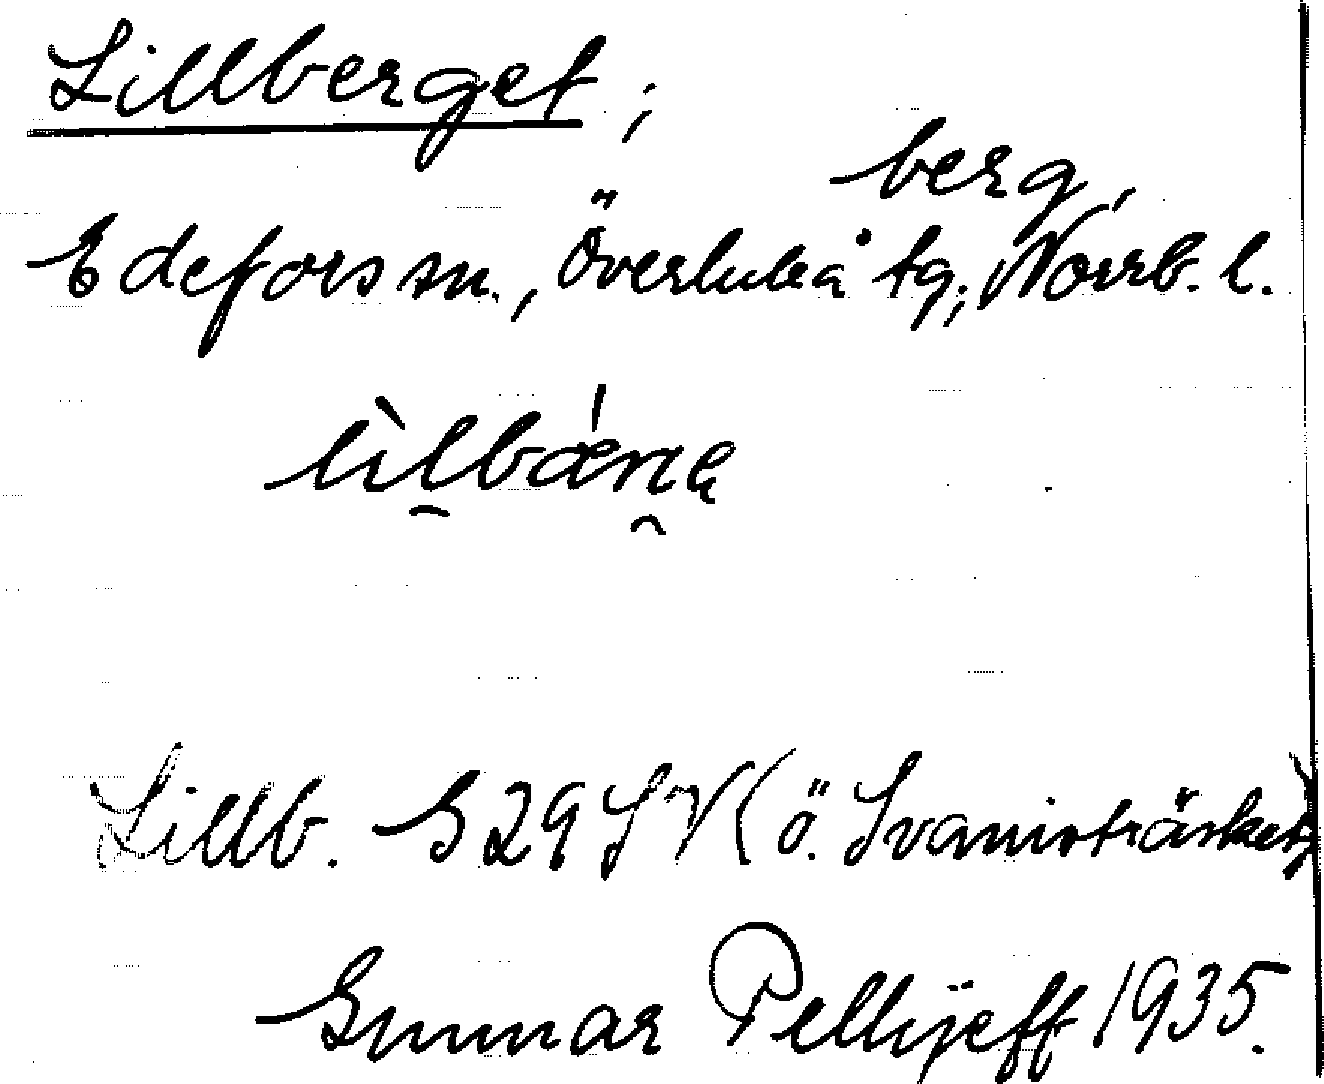 Lillberget;
berg,
Edefors sn., Överluleå tg; Norrb. l.
Lillb. G29SV (ö. Svanisträsket)
Gunnar Pellijeff 1935.